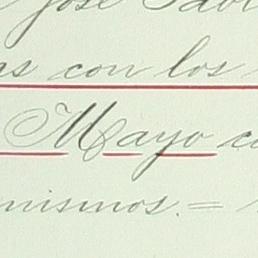 José
as con los
Mayo
mismos. =